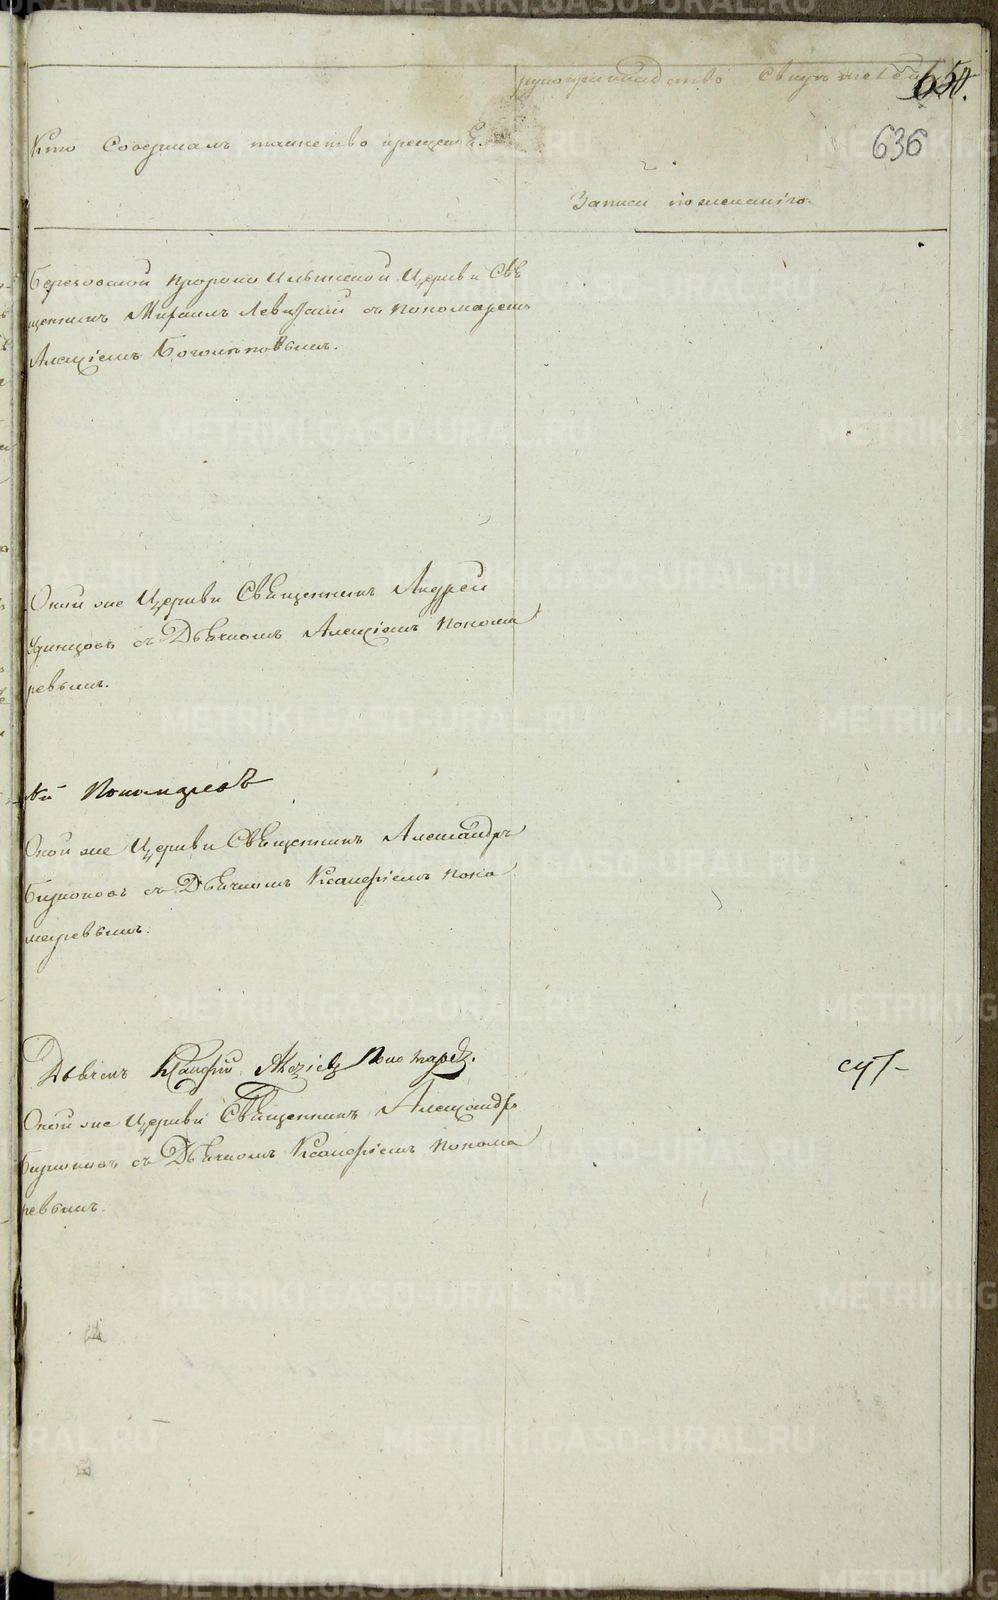 рукоприкладство свидѣтелей
654.
636
Кто Совершалъ таинство крещенiѢ.
Записи по желанiю.
Березовской пророко Ильинской Церкви Свѣ
щенникъ Михаилъ Левицкiй съ пономаремъ
Алексiемъ
Оной же Церкви Священникъ Андрей
Удинцовъ съ Дьячкомъ Алексiемъ Понома
ревымъ.
Пономаревъ
Оной же Церкви Священникъ Александръ
Бирюковъ съ Дьячкомъ Ксанфiемъ Поно
маревымъ.
Дьячекъ Ксанфiй Пономаревъ.
Оной же Церкви Священникъ Александръ
Бирюковъ съ Дьячкомъ Ксанфiемъ Понома
ревымъ.
METRIKI.GASO-URAL.RU